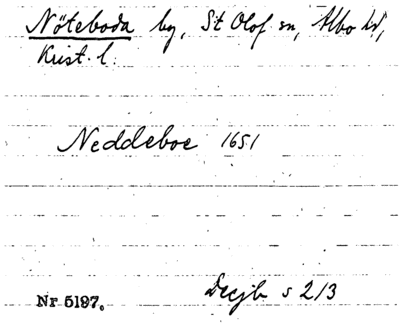 Nöteboda by, St Olof sn, Albo hd,
Krist. l.
Neddeboe 1651
Decjb s 213
Nr 5197.